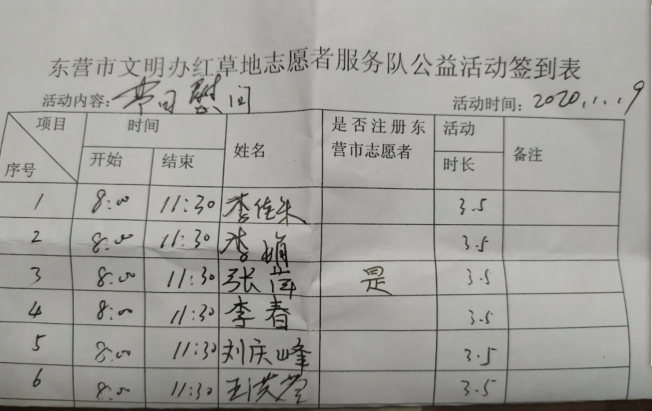 东营市文明办红草地志愿者服务队公益活动签到表
活动内容: 节日慰问 活动时间: 2020.1.19
项目 时间 姓名 是否注册东营市志愿者 活动 备注
序号 开始 结束 时长
1 8:00 11:30 李佳朱 3.5
2 8:00 11:30 李 3.5
3 8:00 11:30 张 是 3.5
4 8:00 11:30 李春 3.5
5 8:00 11:30 刘庆峰 3.5
6 8:00 11:30 王洪 3.5